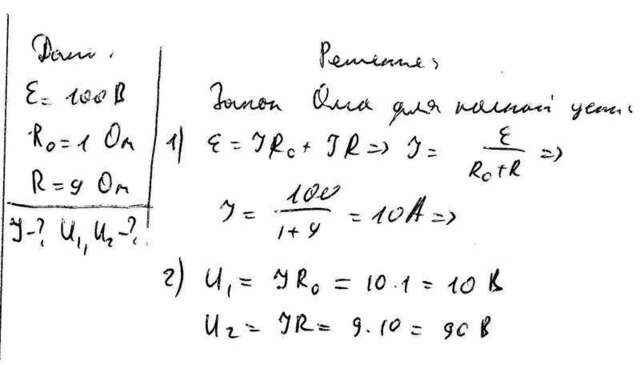 Дано:
ℰ = 100 В
R₀ = 1 Ом
R = 9 Ом
J - ? U₁, U₂ - ?
Решение:
Закон Ома для полной цепи:
1) ℰ = JR₀ + JR => J = ℰ / (R₀ + R) =>
J = 100 / (1 + 9) = 10 А =>
2) U₁ = JR₀ = 10 · 1 = 10 В
U₂ = JR = 9 · 10 = 90 В